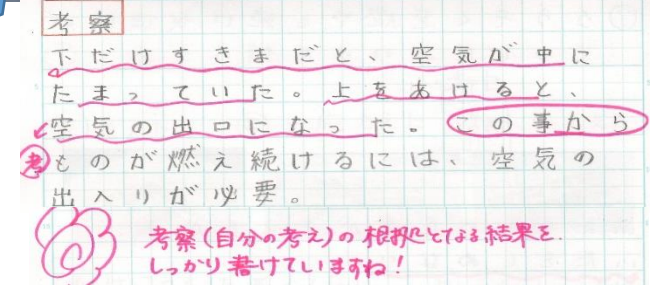 考察
下だけすきまだと、空気が中に
たまっていた。上をあけると、
空気の出口になった。この事から
考 ものが燃え続けるには、空気の
出入りが必要。
考察(自分の考え)の根拠となる結果を
しっかり書けていますね!